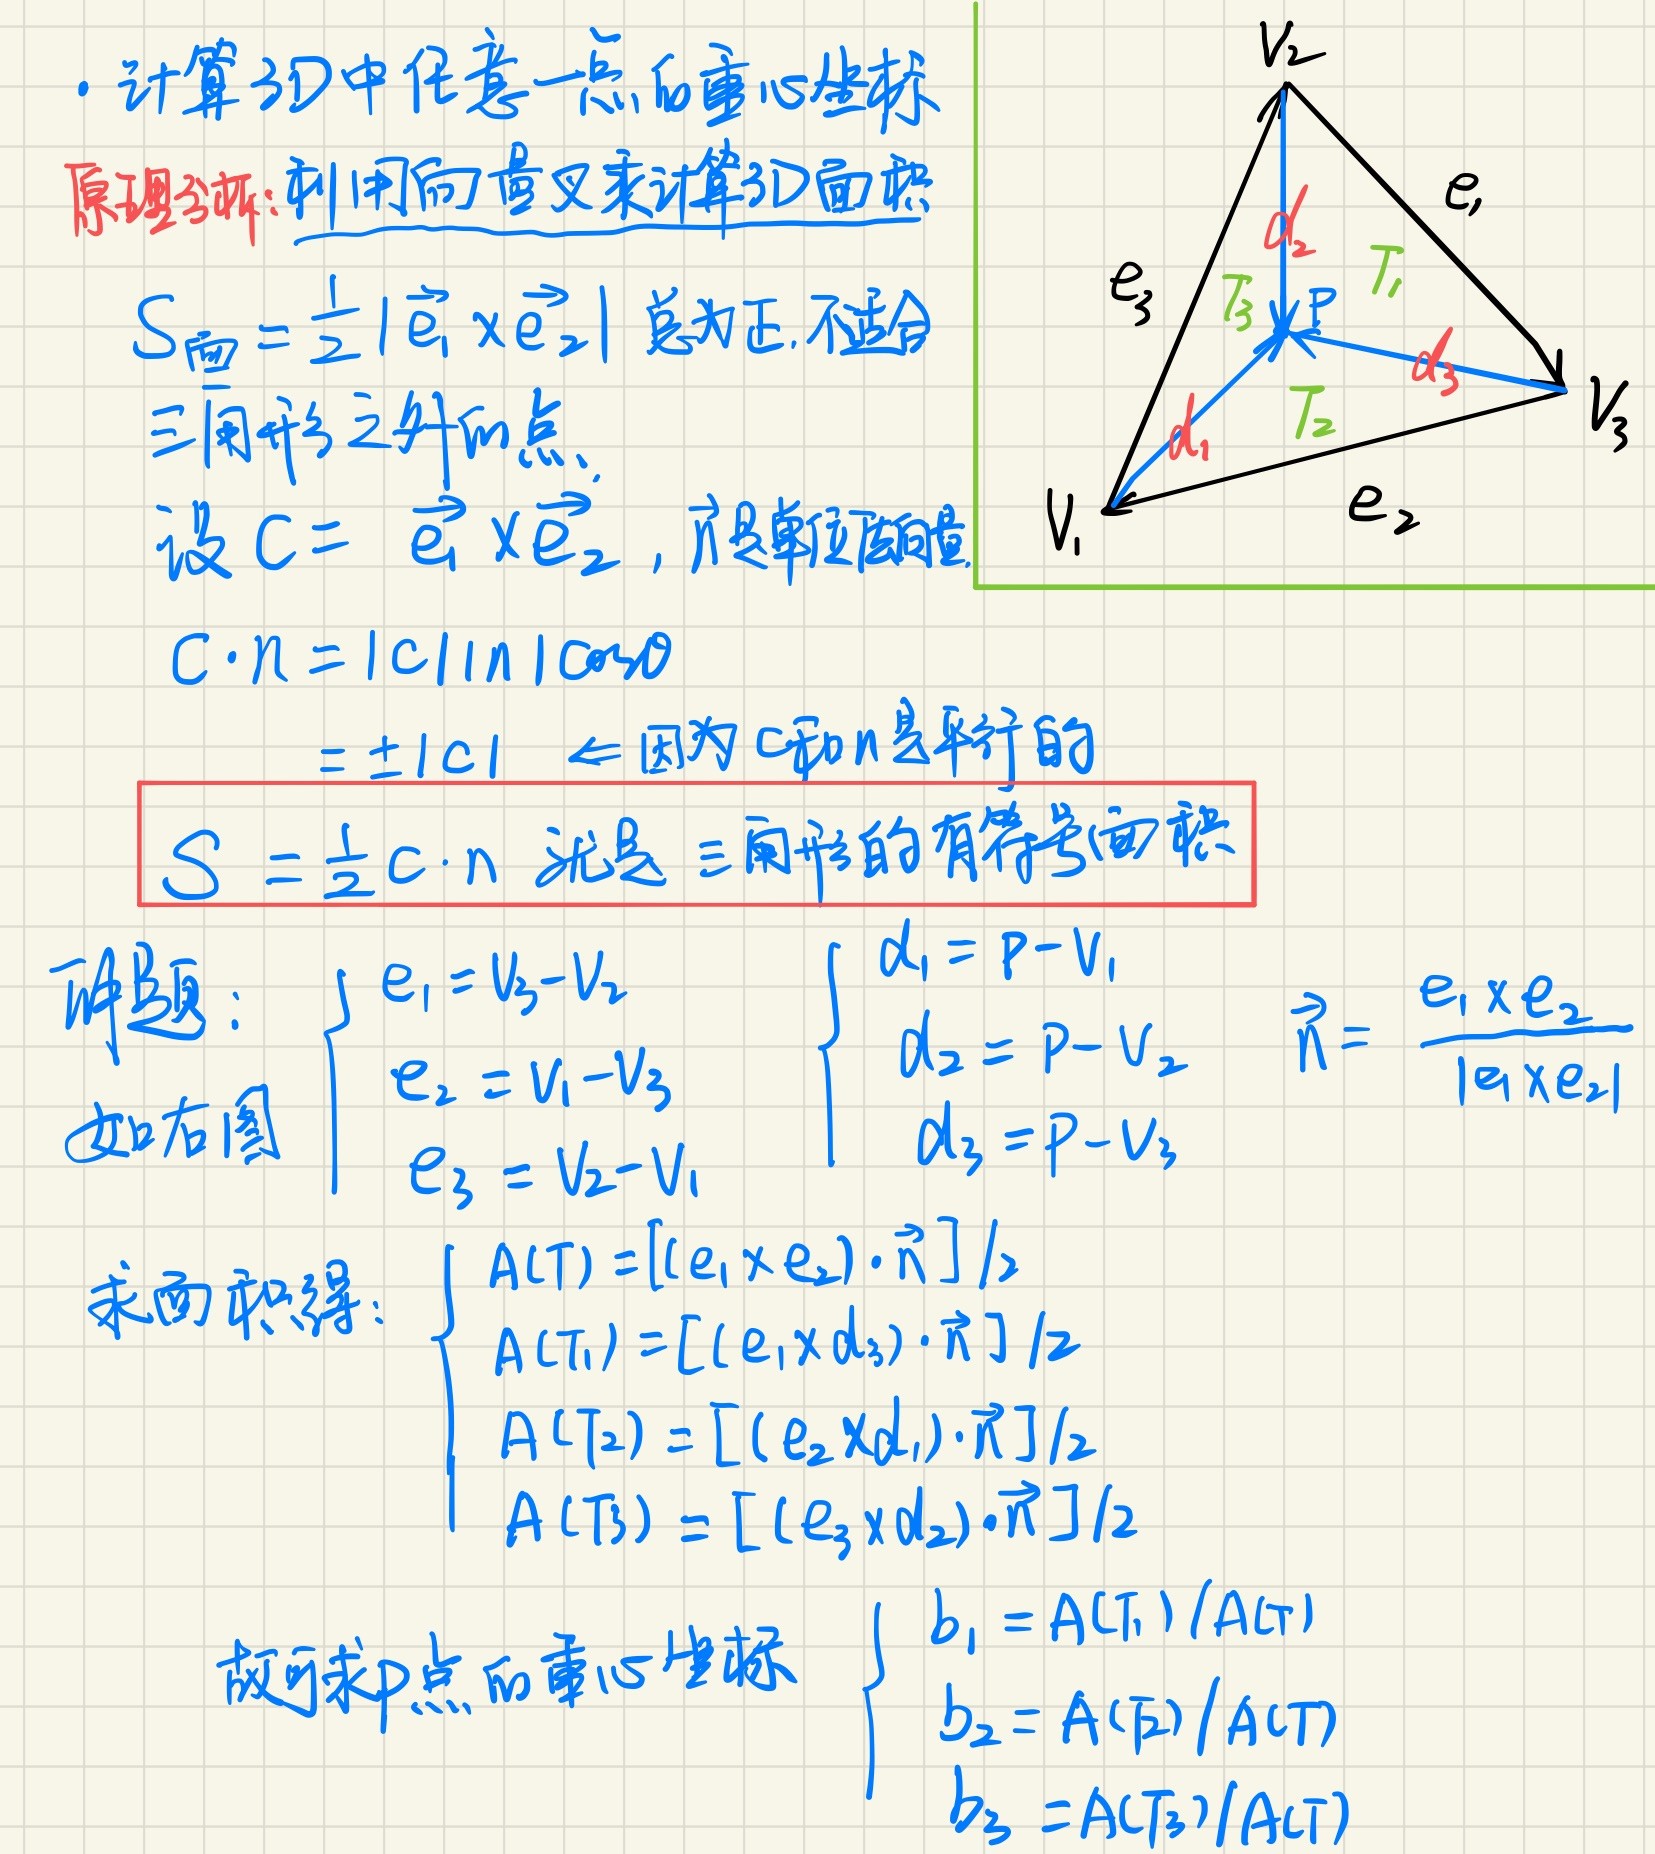 · 计算3D中任意一点的重心坐标
原理分析: 利用向量叉乘计算3D面积
S面 = 1/2 |e₁ × e₂| 总为正, 不适合
三角形之外的点.
设 C = e₁ × e₂ , n是单位法向量.
C·n = |c||n|cosθ
= ±|c| ⇐ 因为c和n是平行的
S = 1/2 c·n 就是三角形的有符号面积
V₂
e₁
d₂
T₁
e₃
T₃
P
d₃
V₃
T₂
d₁
V₁
e₂
解题:
如右图
e₁ = V₃ - V₂
e₂ = V₁ - V₃
e₃ = V₂ - V₁
d₁ = P - V₁
d₂ = P - V₂
d₃ = P - V₃
n = e₁ × e₂ / |e₁ × e₂|
求面积得:
A(T) = [(e₁ × e₂)·n]/2
A(T₁) = [(e₁ × d₃)·n]/2
A(T₂) = [(e₂ × d₁)·n]/2
A(T₃) = [(e₃ × d₂)·n]/2
故可求P点的重心坐标
b₁ = A(T₁)/A(T)
b₂ = A(T₂)/A(T)
b₃ = A(T₃)/A(T)